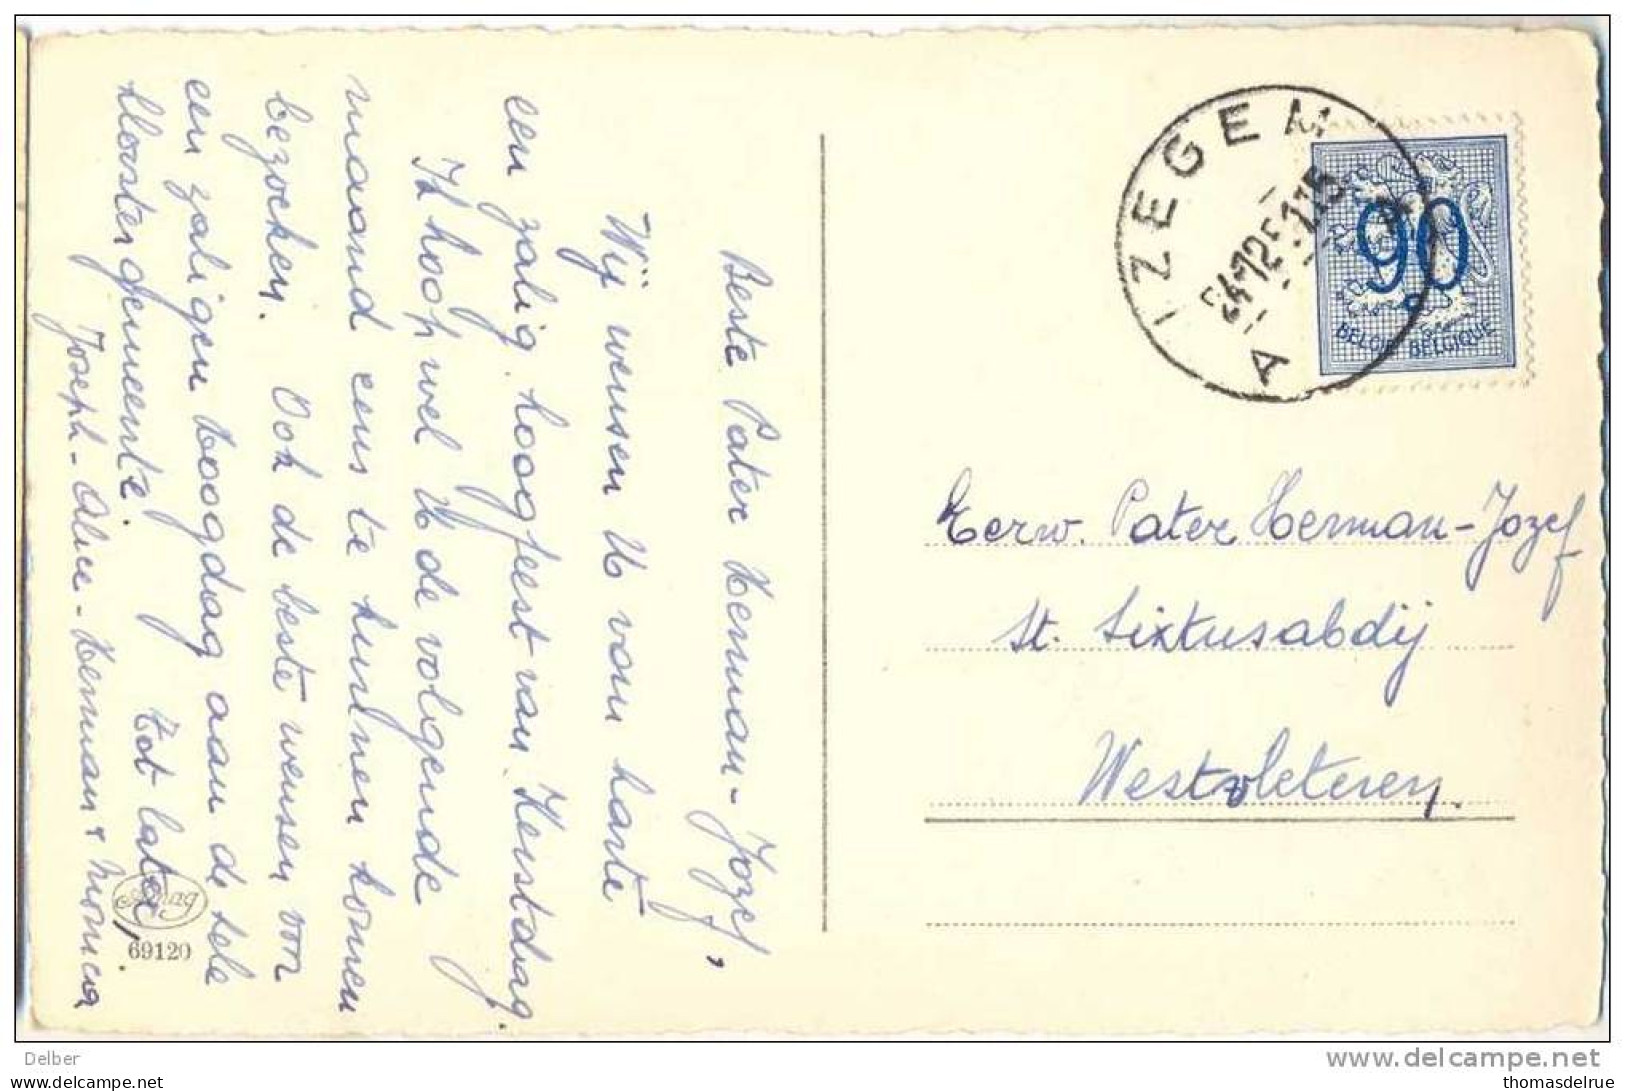 Beste Pater Herman-Jozef,
Wij wensen U van harte
een zalig hoogfeest van Kerstdag.
Ik hoop wel U de volgende
maand eens te kunnen komen
bezoeken. Ook de beste wensen voor
een zaligen hoogdag aan de hele
kloostergemeente. Tot later,
Joseph-Aline-Herman + Monica
69120
IZEGEM
A
90
BELGIE BELGIQUE
Eerw. Pater Herman-Jozef
St. Sixtusabdij
Westvleteren.
Delber
www.delcampe.net
thomasdelrue